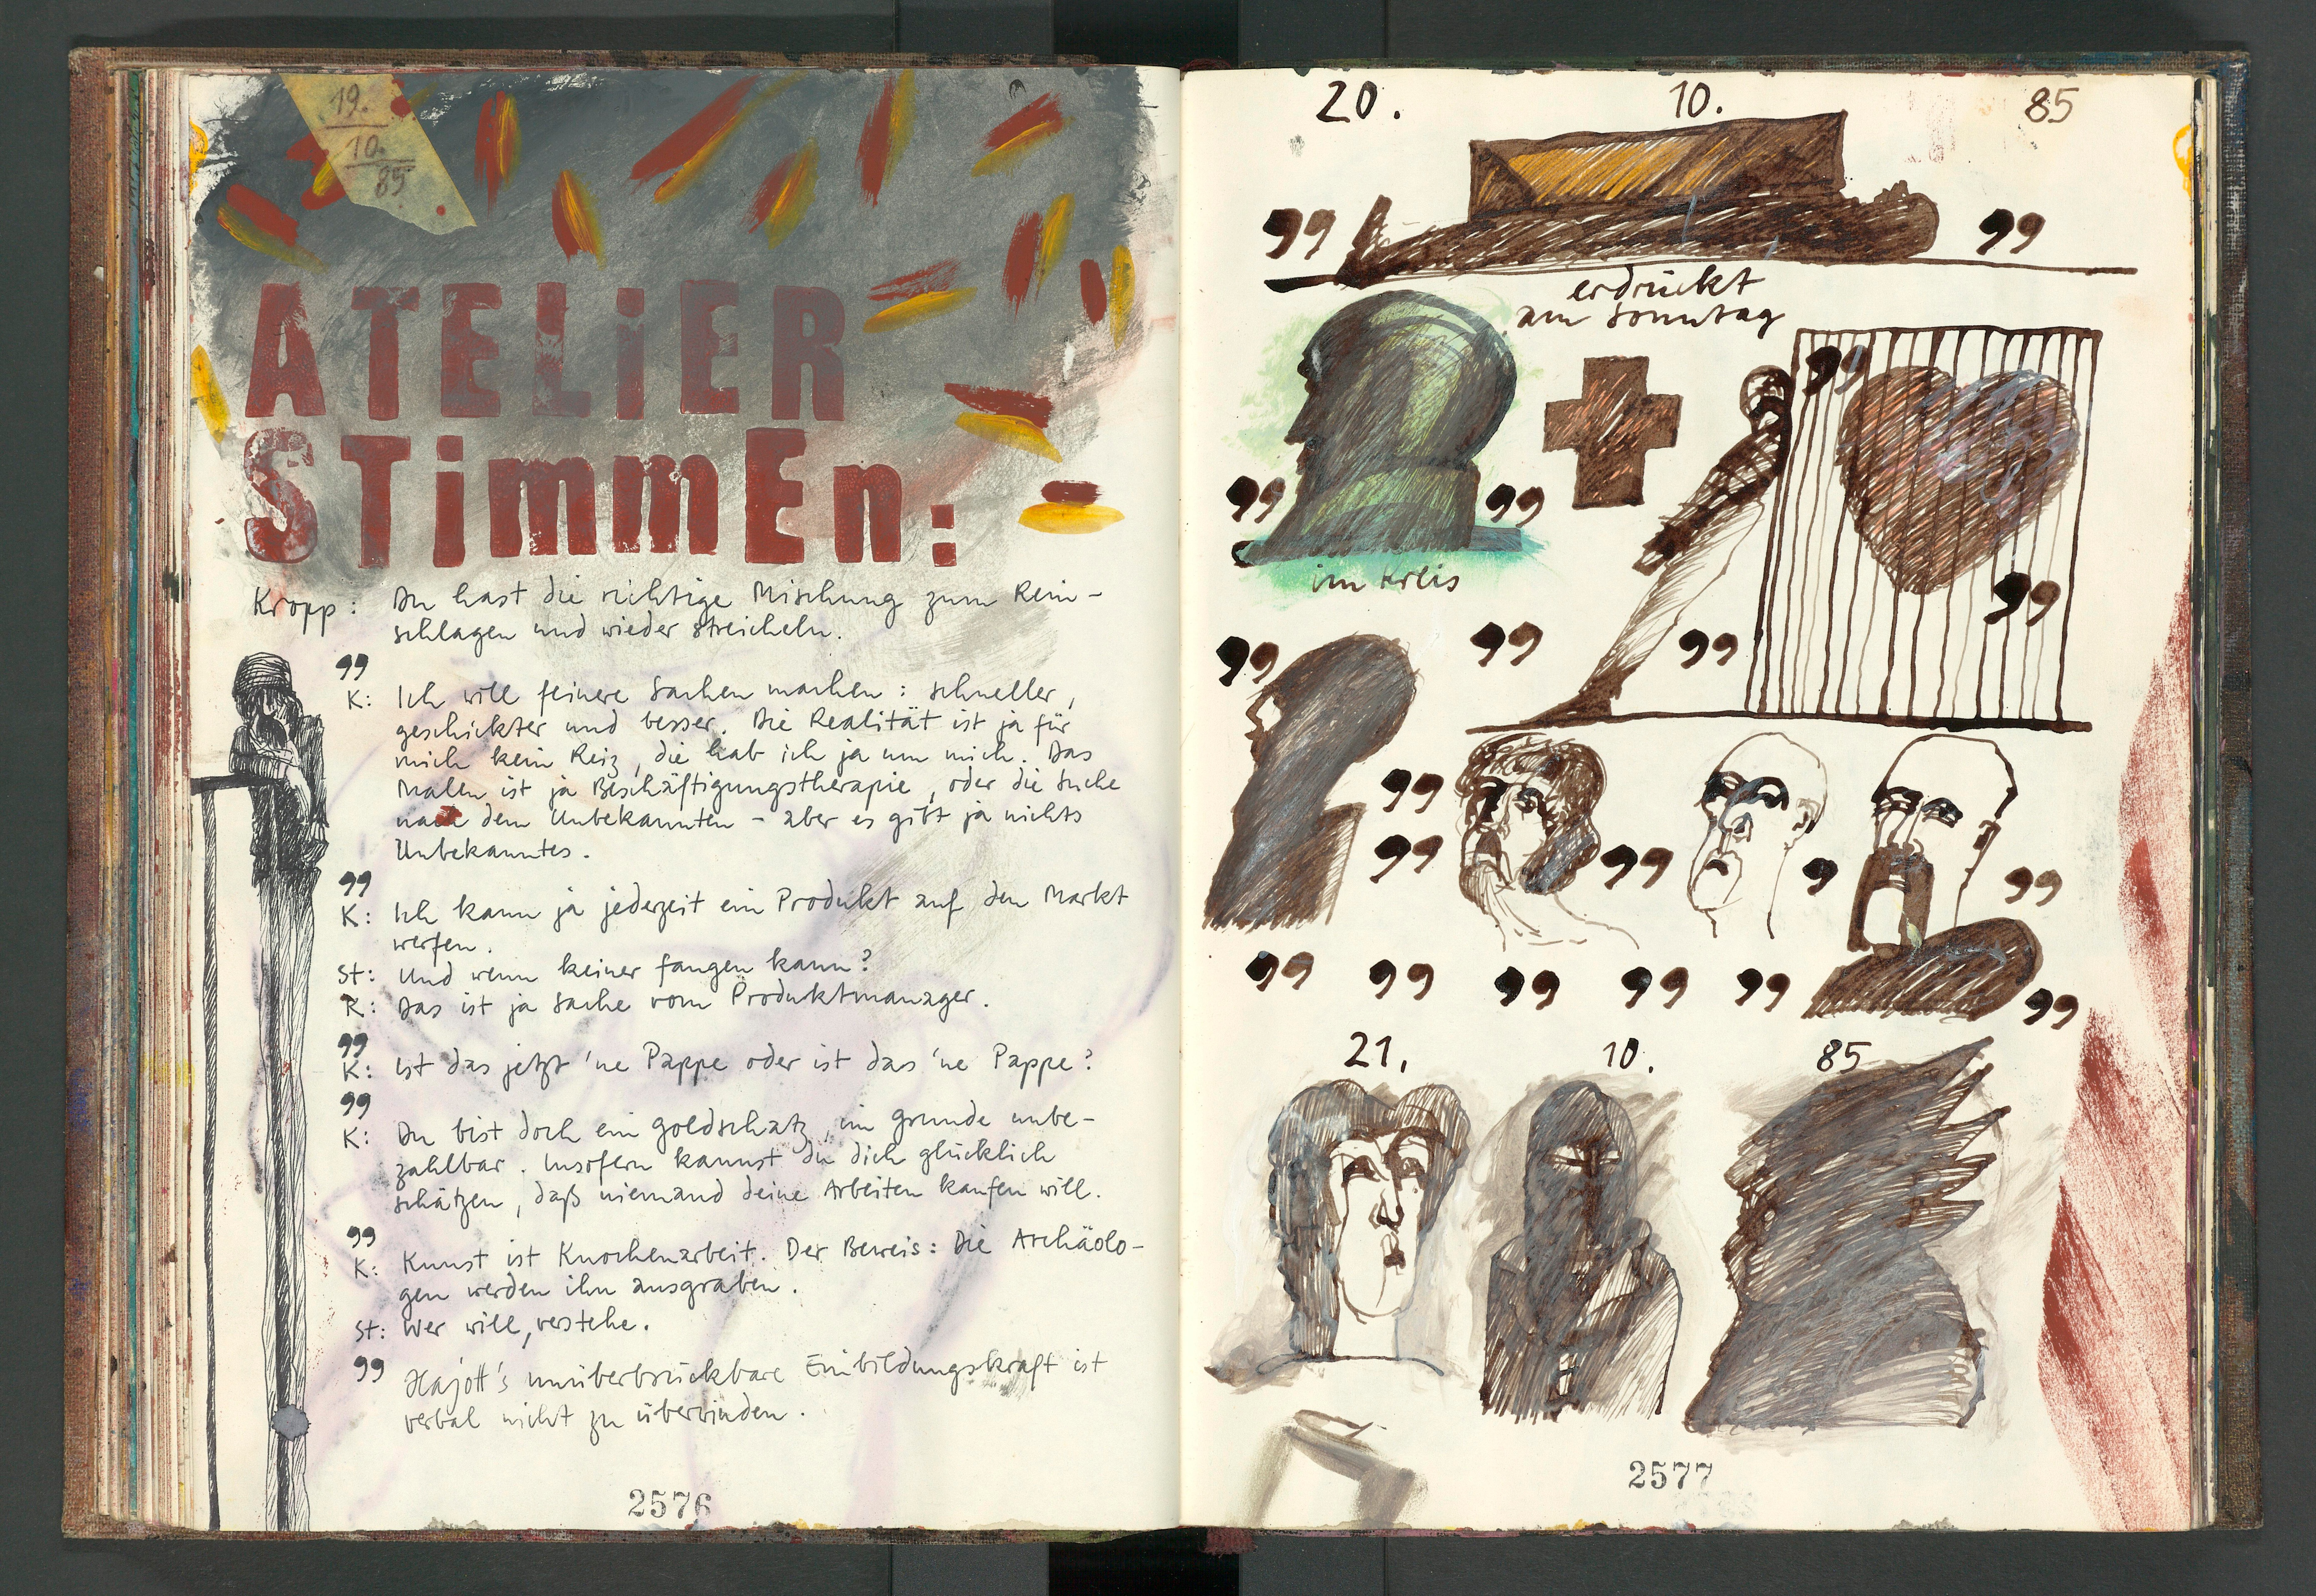 19.
10.
85
ATELiER
STimmEn:
Kropp: Du hast die richtige Mischung zum Rein-
schlagen und wieder streicheln.
99
K: Ich will feinere Sachen machen: schneller,
geschickter und besser. Die Realität ist ja für
mich kein Reiz, die hab ich ja um mich. Das
Malen ist ja Beschäftigungstherapie, oder die Suche
nach dem Unbekannten – aber es gibt ja nichts
Unbekanntes.
99
K: Ich kann ja jederzeit ein Produkt auf den Markt
werfen.
St: Und wenn keiner fangen kann?
K: Das ist ja Sache vom Produktmanager.
99
K: Ist das jetzt 'ne Pappe oder ist das 'ne Pappe?
99
K: Du bist doch ein Goldschatz, im Grunde unbe-
zahlbar. Insofern kannst du dich glücklich
schätzen, daß niemand deine Arbeiten kaufen will.
99
K: Kunst ist Knochenarbeit. Der Beweis: Die Archäolo-
gen werden ihn ausgraben.
St: Wer will, verstehe.
99 Hajott's unüberbrückbare Einbildungskraft ist
verbal nicht zu überwinden.
2576
20. 10. 85
99 99
erdrückt
am Sonntag
99
99 99
im Kreis
99
99 99 99
99
99 99 9 99
99 99 99 99 99 99
21. 10. 85
2577